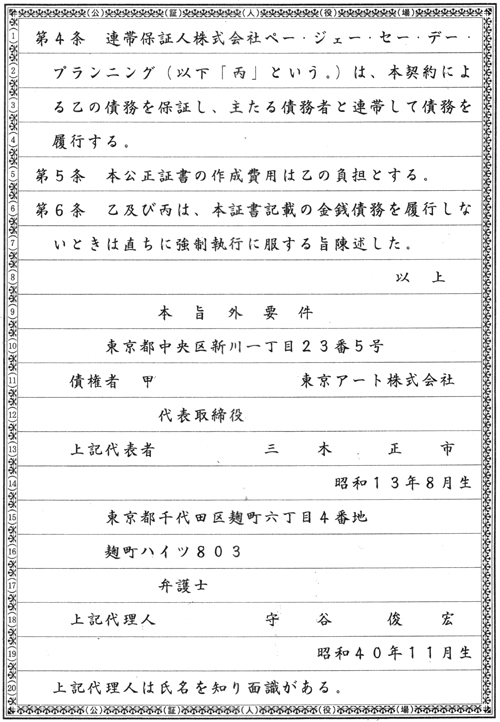 (公)(証)(人)(役)(場)
① 第4条 連帯保証人株式会社ペー・ジェー・セー・デー・
② プランニング(以下「丙」という。)は、本契約によ
③ る乙の債務を保証し、主たる債務者と連帯して債務を
④ 履行する。
⑤ 第5条 本公正証書の作成費用は乙の負担とする。
⑥ 第6条 乙及び丙は、本証書記載の金銭債務を履行しな
⑦ いときは直ちに強制執行に服する旨陳述した。
⑧ 以上
⑨ 本旨外要件
⑩ 東京都中央区新川一丁目23番5号
⑪ 債権者 甲 東京アート株式会社
⑫ 代表取締役
⑬ 上記代表者 三木正市
⑭ 昭和13年8月生
⑮ 東京都千代田区麹町六丁目4番地
⑯ 麹町ハイツ803
⑰ 弁護士
⑱ 上記代理人 守谷俊宏
⑲ 昭和40年11月生
⑳ 上記代理人は氏名を知り面識がある。
(公)(証)(人)(役)(場)